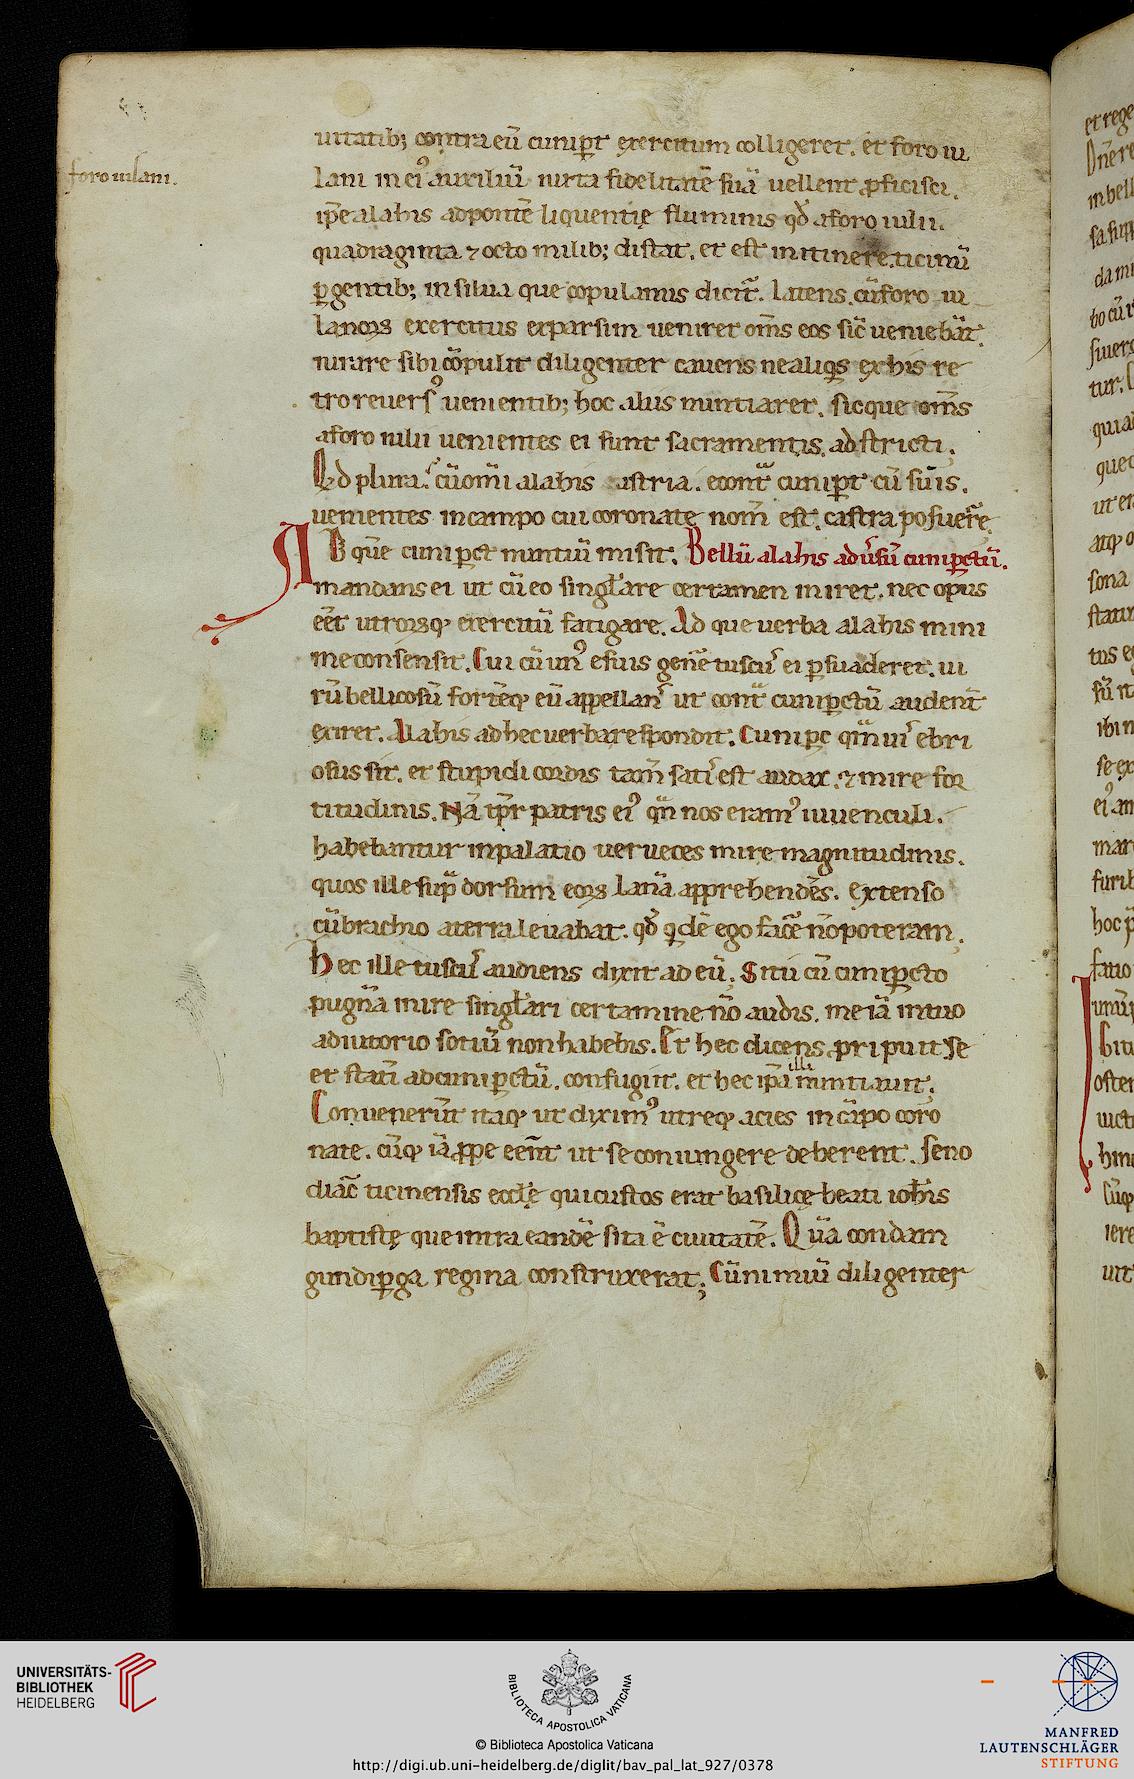 uitatib; contra eū cunip̄t exercitum colligeret. et foro iu
foro iulani.
lani in ei᾿ auxiliū iuxta fidelitatē suā uellent ꝓficisci.
ip̄e alahis ad pontē liquentię fluminis qđ a foro iulii.
quadraginta ⁊ octo milib; distat. et est in itinere. ticinū
ꝑgentib; in silua que copulanus dicit̄. latens. cū foro iu
lanoꝝ exercitus exparsim ueniret om̄s eos sic̄ ueniebāt.
iurare sibi cōpulit diligenter cauens ne aliqis ex his re
tro reuers᾿ uenientib; hoc aliis nuntiaret. sicque om̄s
a foro iulii uenientes ei sunt sacramentis. adstricti.
Qd plura. cū om̄i alahis astria. econt̄ cunip̄t cū suis.
uenientes in campo cui coronate nom̄ est. castra posuer̄e
AD quē cuniꝑct nuntiū misit. Bellū alahis aduersū cuniꝑctū.
mandans ei ut cū eo singlare certamen iniret. nec opus
eēt utroꝝqꝫ exercitū fatigare. Ad que uerba alahis mini
me consensit. Cui cū un᾿ e suis genēe tuscus ei ꝑsuaderet. ui
rū bellicosū fortēqꝫ eū appellans ut cont̄ cuniꝑctū audent̄
exiret. Alahis ad hec uerba respondit. Cuniꝑc qm̄uis ebri
osus sit. et stupidi cordis tam̄ satis est audax. ⁊ mire for
titudinis. Nā tp̄r patris ei᾿ qn̄ nos eram᾿ iuuenculi.
habebantur in palatio uerueces mire magnitudinis.
quos ille sup̄ dorsum eoꝝ lanā apprehendēs. extenso
cū brachio a terra leuabat. qđ qidē ego facē nō poteram.
Hec ille tuscus audiens dixit ad eū. Si tu cū cuniꝑcto
pugnā inire singlari certamine nō audis. me iā in tuo
adiutorio sotiū non habebis. Et hec dicens. pripuit se
et stati ad cuniꝑctū. confugiit. et hec ip̄a illi nuntiauit.
Conuenerūt itaqꝫ ut dixim᾿ utreqꝫ acies in cāpo coro
nate. cūqꝫ iā ꝓpe eēnt ut se coniungere deberent. seno
diac̄ ticinensis eccl̄ę qui custos erat basilicę beati ioh̄is
baptistę que intra eandē sita ē ciuitatē. Quā condam
gundiꝑga regina construxerat. Cū nimiū diligenter
UNIVERSITÄTS-
BIBLIOTHEK
HEIDELBERG
BIBLIOTECA APOSTOLICA VATICANA
© Biblioteca Apostolica Vaticana
http://digi.ub.uni-heidelberg.de/diglit/bav_pal_lat_927/0378
MANFRED
LAUTENSCHLÄGER
STIFTUNG